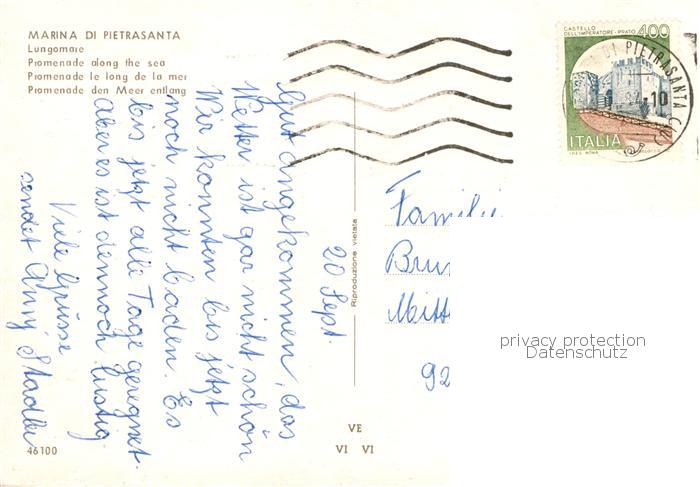 MARINA DI PIETRASANTA
Lungomare
Promenade along the sea
Promenade le long de la mer
Promenade den Meer entlang
CASTELLO
DELL'IMPERATORE - PRATO 400
ITALIA
DI PIETRASANTA (LU)
10
20 Sept.
Gut angekommen, das
Wetter ist gar nicht schön
Wir konnten bis jetzt
noch nicht baden. Es
bis jetzt alle Tage geregnet.
Aber es ist dennoch lustig.
Viele Grüsse,
sendet Anny Stadler
Riproduzione vietata
Famili
Brun
Mitt
92
privacy protection
Datenschutz
46100
VE
VI VI